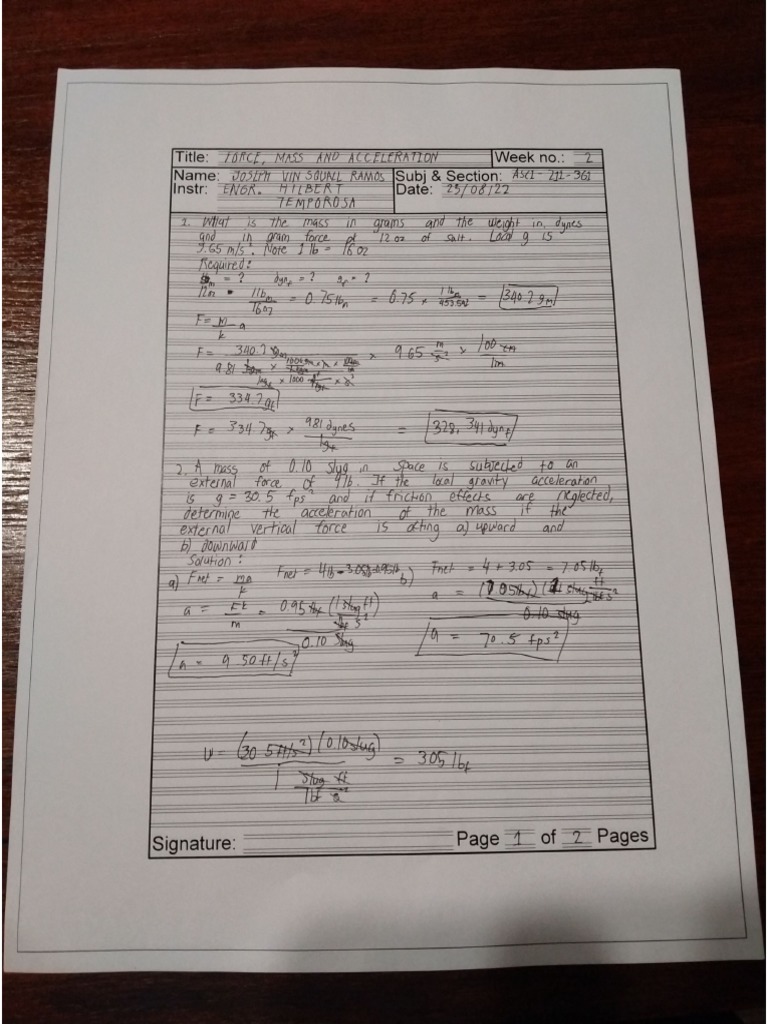 Title: FORCE, MASS AND ACCELERATION Week no.: 2
Name: JOSEPH VIN SQUALL RAMOS Subj & Section: ASCI-211-361
Instr: ENGR. HILBERT Date: 23/08/22
TEMPOROSA
1. What is the mass in grams and the weight in dynes
and in gram force of 12 oz of salt. Local g is
9.65 m/s². Note 1 lb = 16 oz
Required:
= ? dynf = ? gf = ?
= 0.75 lbm = 0.75 × = 340.2 gm
F = m/k a
F = 340.2 × 9.65 m/s² × 100 cm/1m
F = 334.7 gf
F = 334.7 gf × 981 dynes/1gf = 328, 341 dynf
2. A mass of 0.10 slug in space is subjected to an
external force of 4lb. If the local gravity acceleration
is g = 30.5 fps² and if friction effects are neglected,
determine the acceleration of the mass if the
external vertical force is acting a) upward and
b) downward
Solution:
a) Fnet = ma/k Fnet = 4lb - b) Fnet = 4 + 3.05 = 7.05 lbf
a = Fk/m = 0.95 lbf (1 slug ft/lbf s²)/0.10 slug a = (7.05 lbf)/0.10 slug
a = 9.50 ft/s² a = 70.5 fps²
W = (30.5 ft/s²)(0.10 slug)/1 slug ft/lbf s² = 3.05 lbf
Signature: Page 1 of 2 Pages